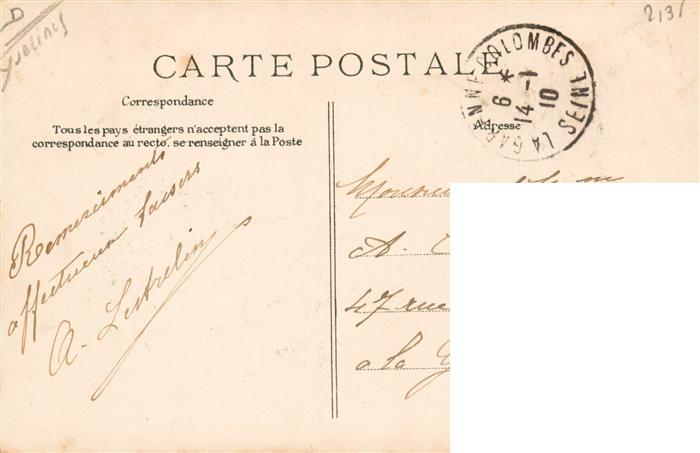 D
Yvelines
2131
CARTE POSTALE
LA GARENNE-COLOMBES SEINE
6 * 14 -1 10
Correspondance
Tous les pays étrangers n'acceptent pas la
correspondance au recto, se renseigner à la Poste
Adresse
Remerciements
affectueux baisers
A. Lestrelin
Monsieur
A.
47 rue
a la G